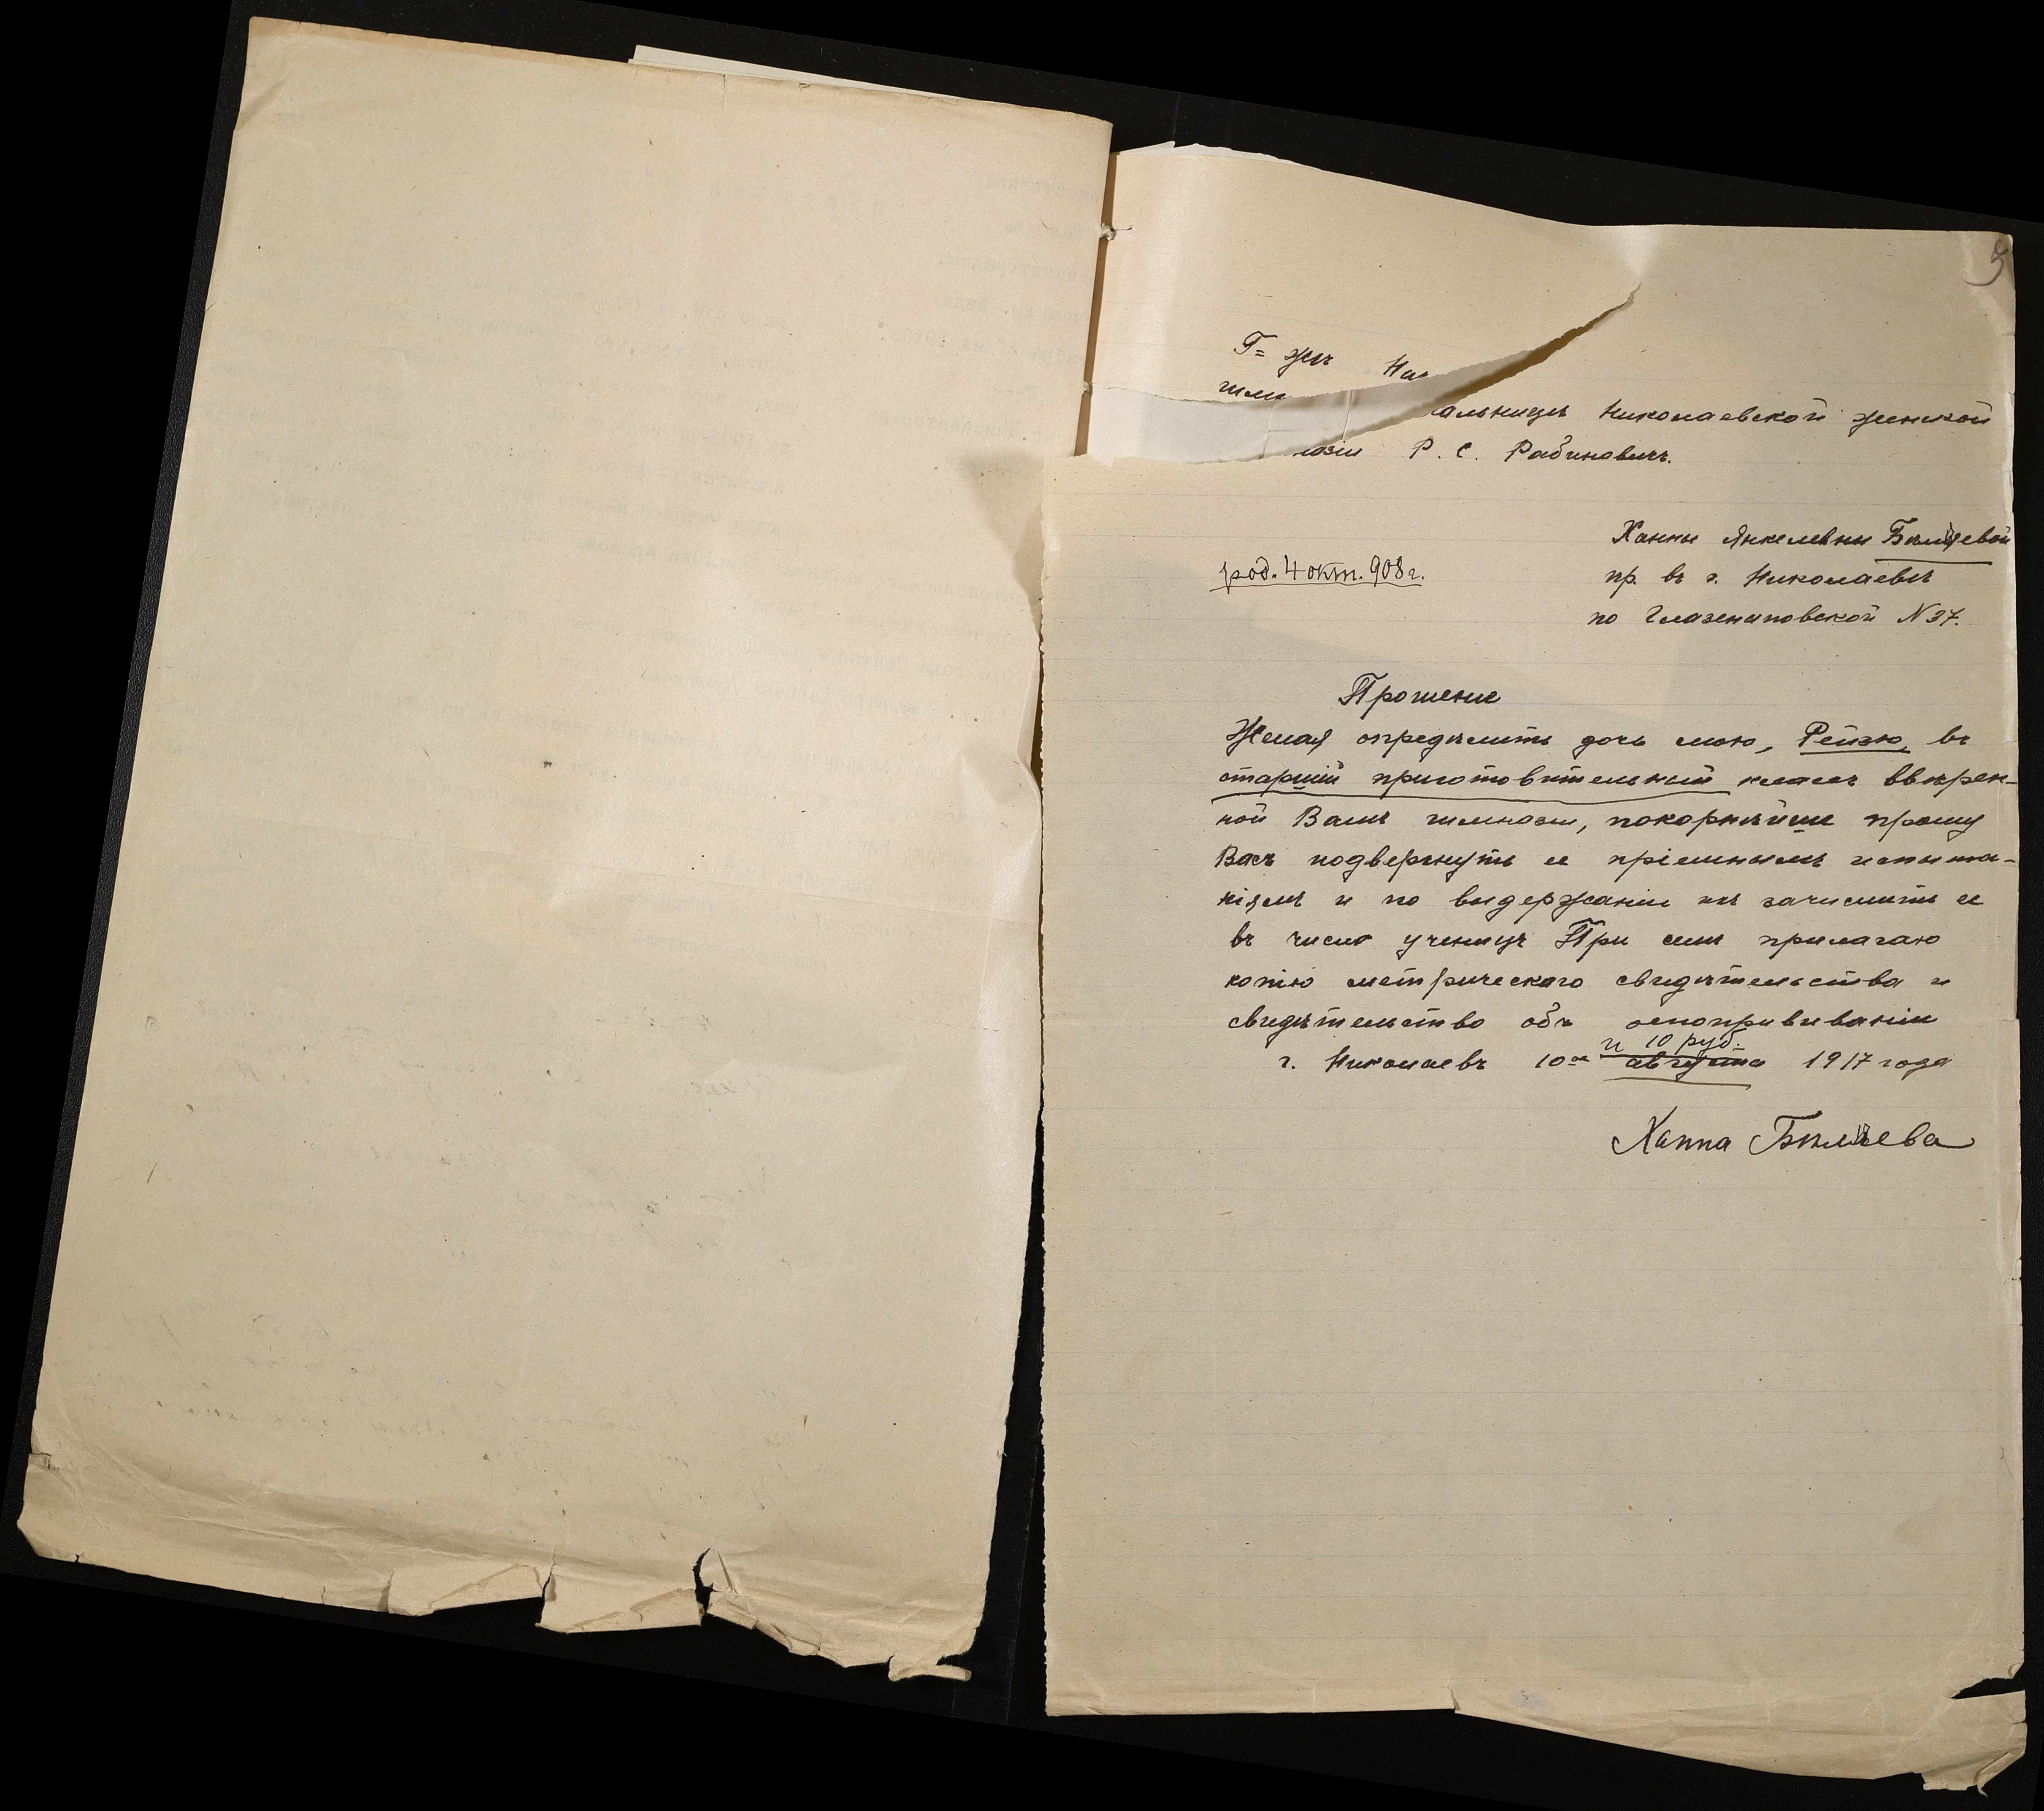 5
Г=жѣ На
гим
альницѣ Николаевской женской
назіи Р. С. Рабиновичъ.
Ханны Янкелевны
род. 4 окт. 908 г.
пр. въ г. Николаевѣ
по Глазенаповской N 37.
Прошеніе
Желая опредѣлить дочь мою, Рейзю, въ
старшій приготовительный классъ ввѣрен-
ной Вамъ гимназіи, покорнѣйше прошу
Васъ подвергнуть ее пріемнымъ испыта-
ніямъ и по выдержаніи ихъ зачислить ее
въ число ученицъ При семъ прилагаю
копію метрическаго свидѣтельства и
свидѣтельство объ оспопрививаніи
и 10 руб.
г. Николаевъ 10го августа 1917 года
Ханна